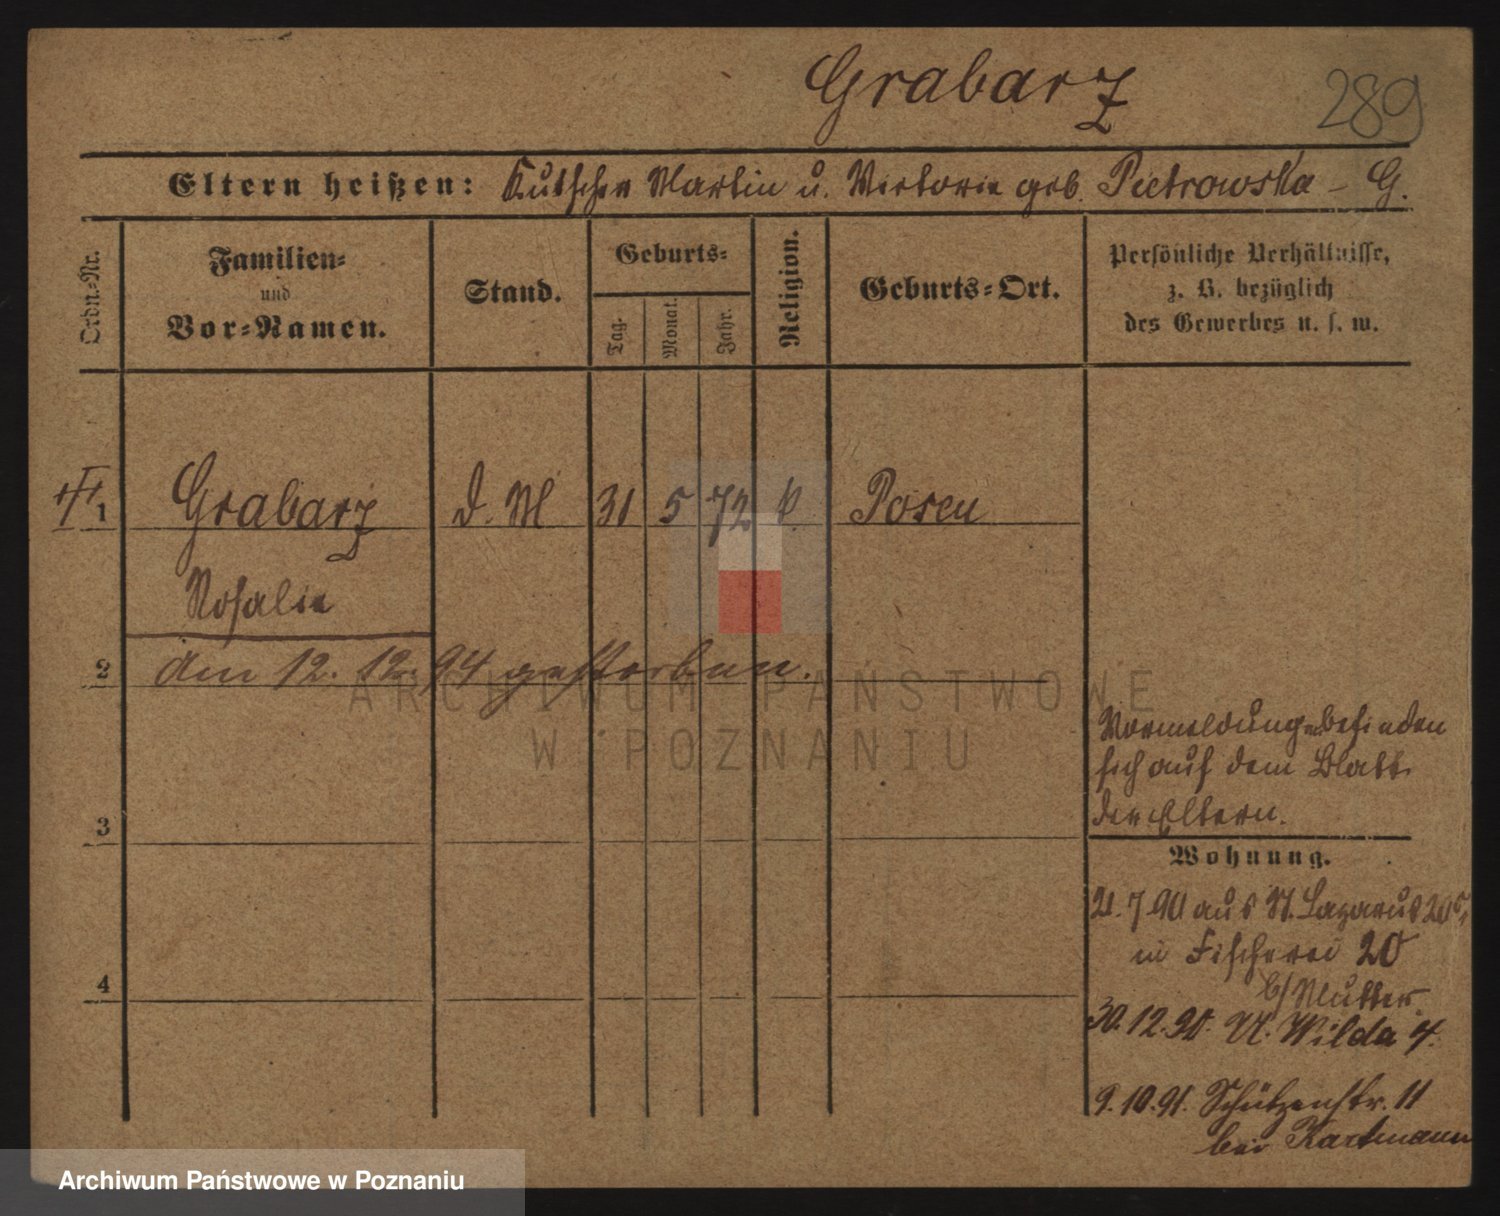 Grabarz
289
Eltern heißen: Kutscher Martin u. Victoria geb. Pietrowska - G.
Ordn.-Nr.
Familien-
und
Vor-Namen.
Stand.
Geburts-
Tag.
Monat.
Jahr.
Religion.
Geburts-Ort.
Persönliche Verhältnisse,
z. B. bezüglich
des Gewerbes u. s. w.
1 Grabarz d. M 31 5 72 k. Posen
Rosalie
2 Am 12. 12. 94 gestorben.
Vormeldungen befinden
sich auf dem Blatt
der Eltern.
3
Wohnung.
21. 7. 90 aus St. Lazarus
in Fischerei 20
b/ Mutter.
4
30. 12. 90. U. Wilda 4.
9. 10. 91. Schützenstr. 11
bei Kartmann
ARCHIWUM PAŃSTWOWE
W POZNANIU
Archiwum Państwowe w Poznaniu